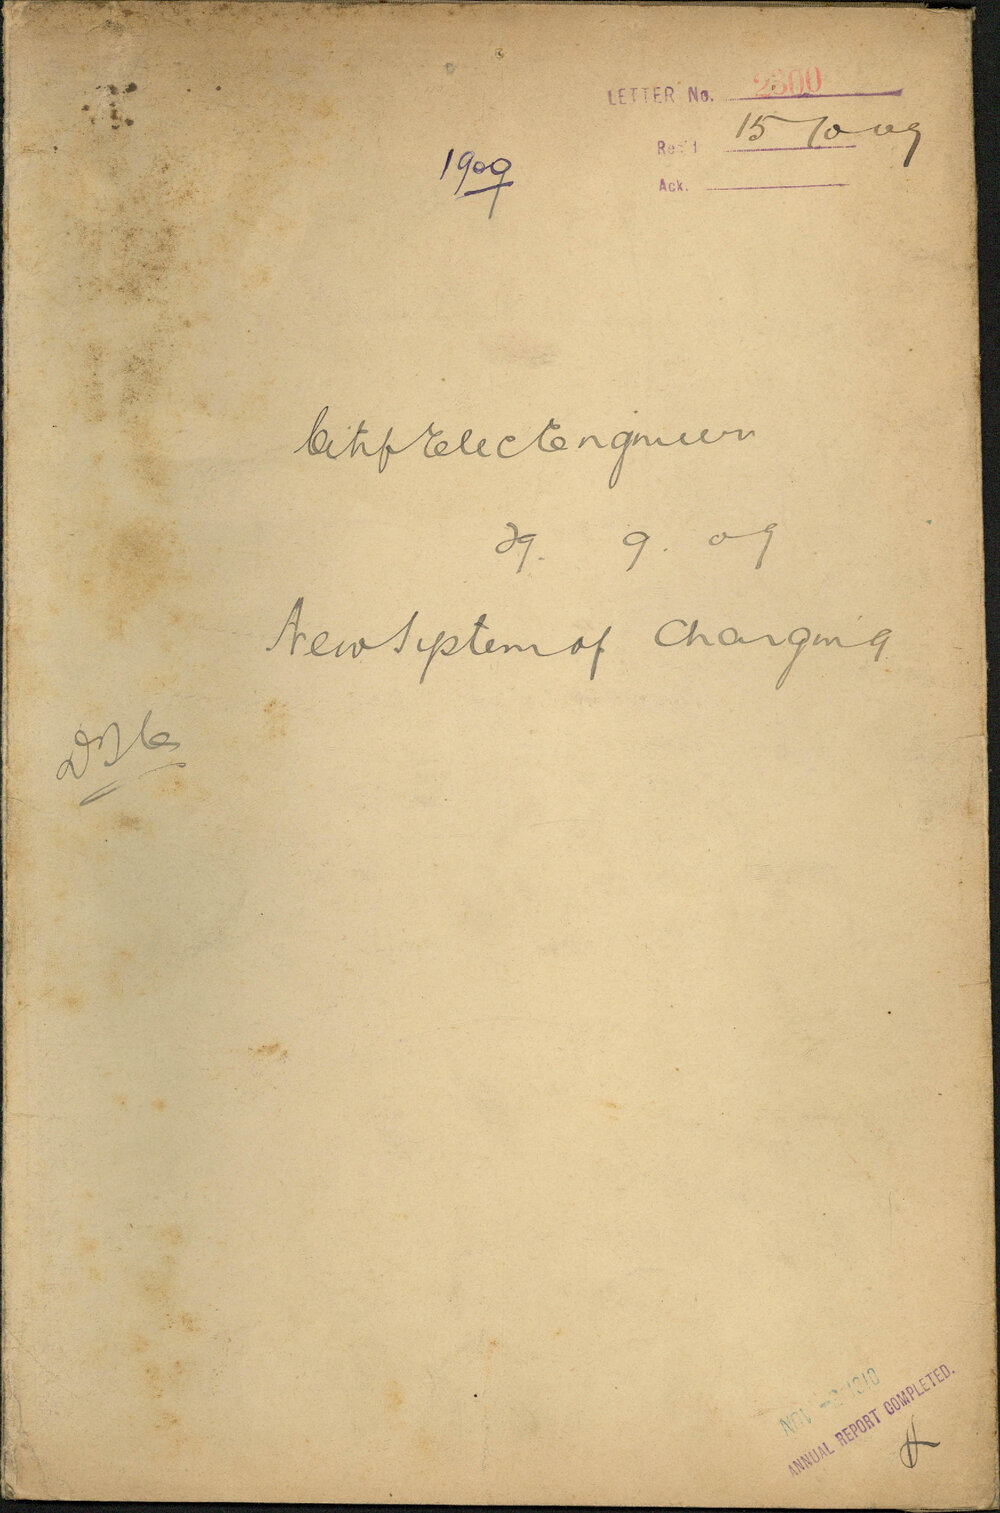 LETTER No. 2300
Rec'd 15 10 09
Ack.
1909
City Elec Engineer
29. 9. 09
New System of Charging
NOV -2 1910
ANNUAL REPORT COMPLETED.